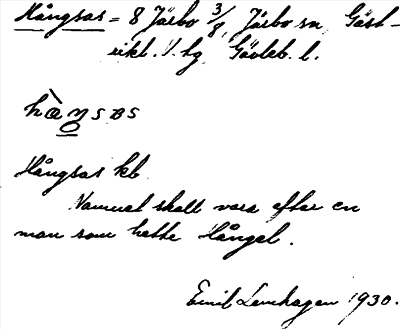 Hångsas = 8 Järbo 3/8, Järbo sn, Gäst-
rikl. V. hg, Gävleb. l.
Hångsas kb
Namnet skall vara efter en
man som hette Hångel.
Emil Lenhagen 1930.